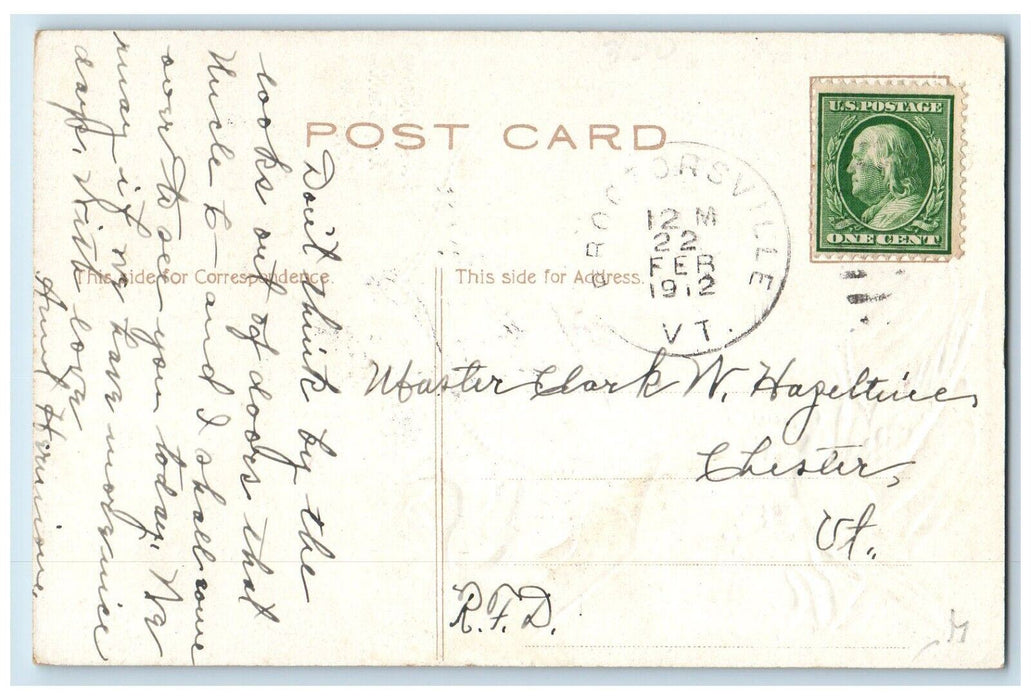 POST CARD
U.S.POSTAGE
ONE CENT
PROCTORSVILLE
12 M
22
FEB
1912
VT.
This side for Correspondence.
This side for Address.
Don't think by the
looks out of doors that
Uncle E- and I shall come
over to see you today. We
may if we have more nice
days. With love
Aunt Hermine.
Master Clark W. Hazeltine,
Chester,
Vt.
R.F.D.